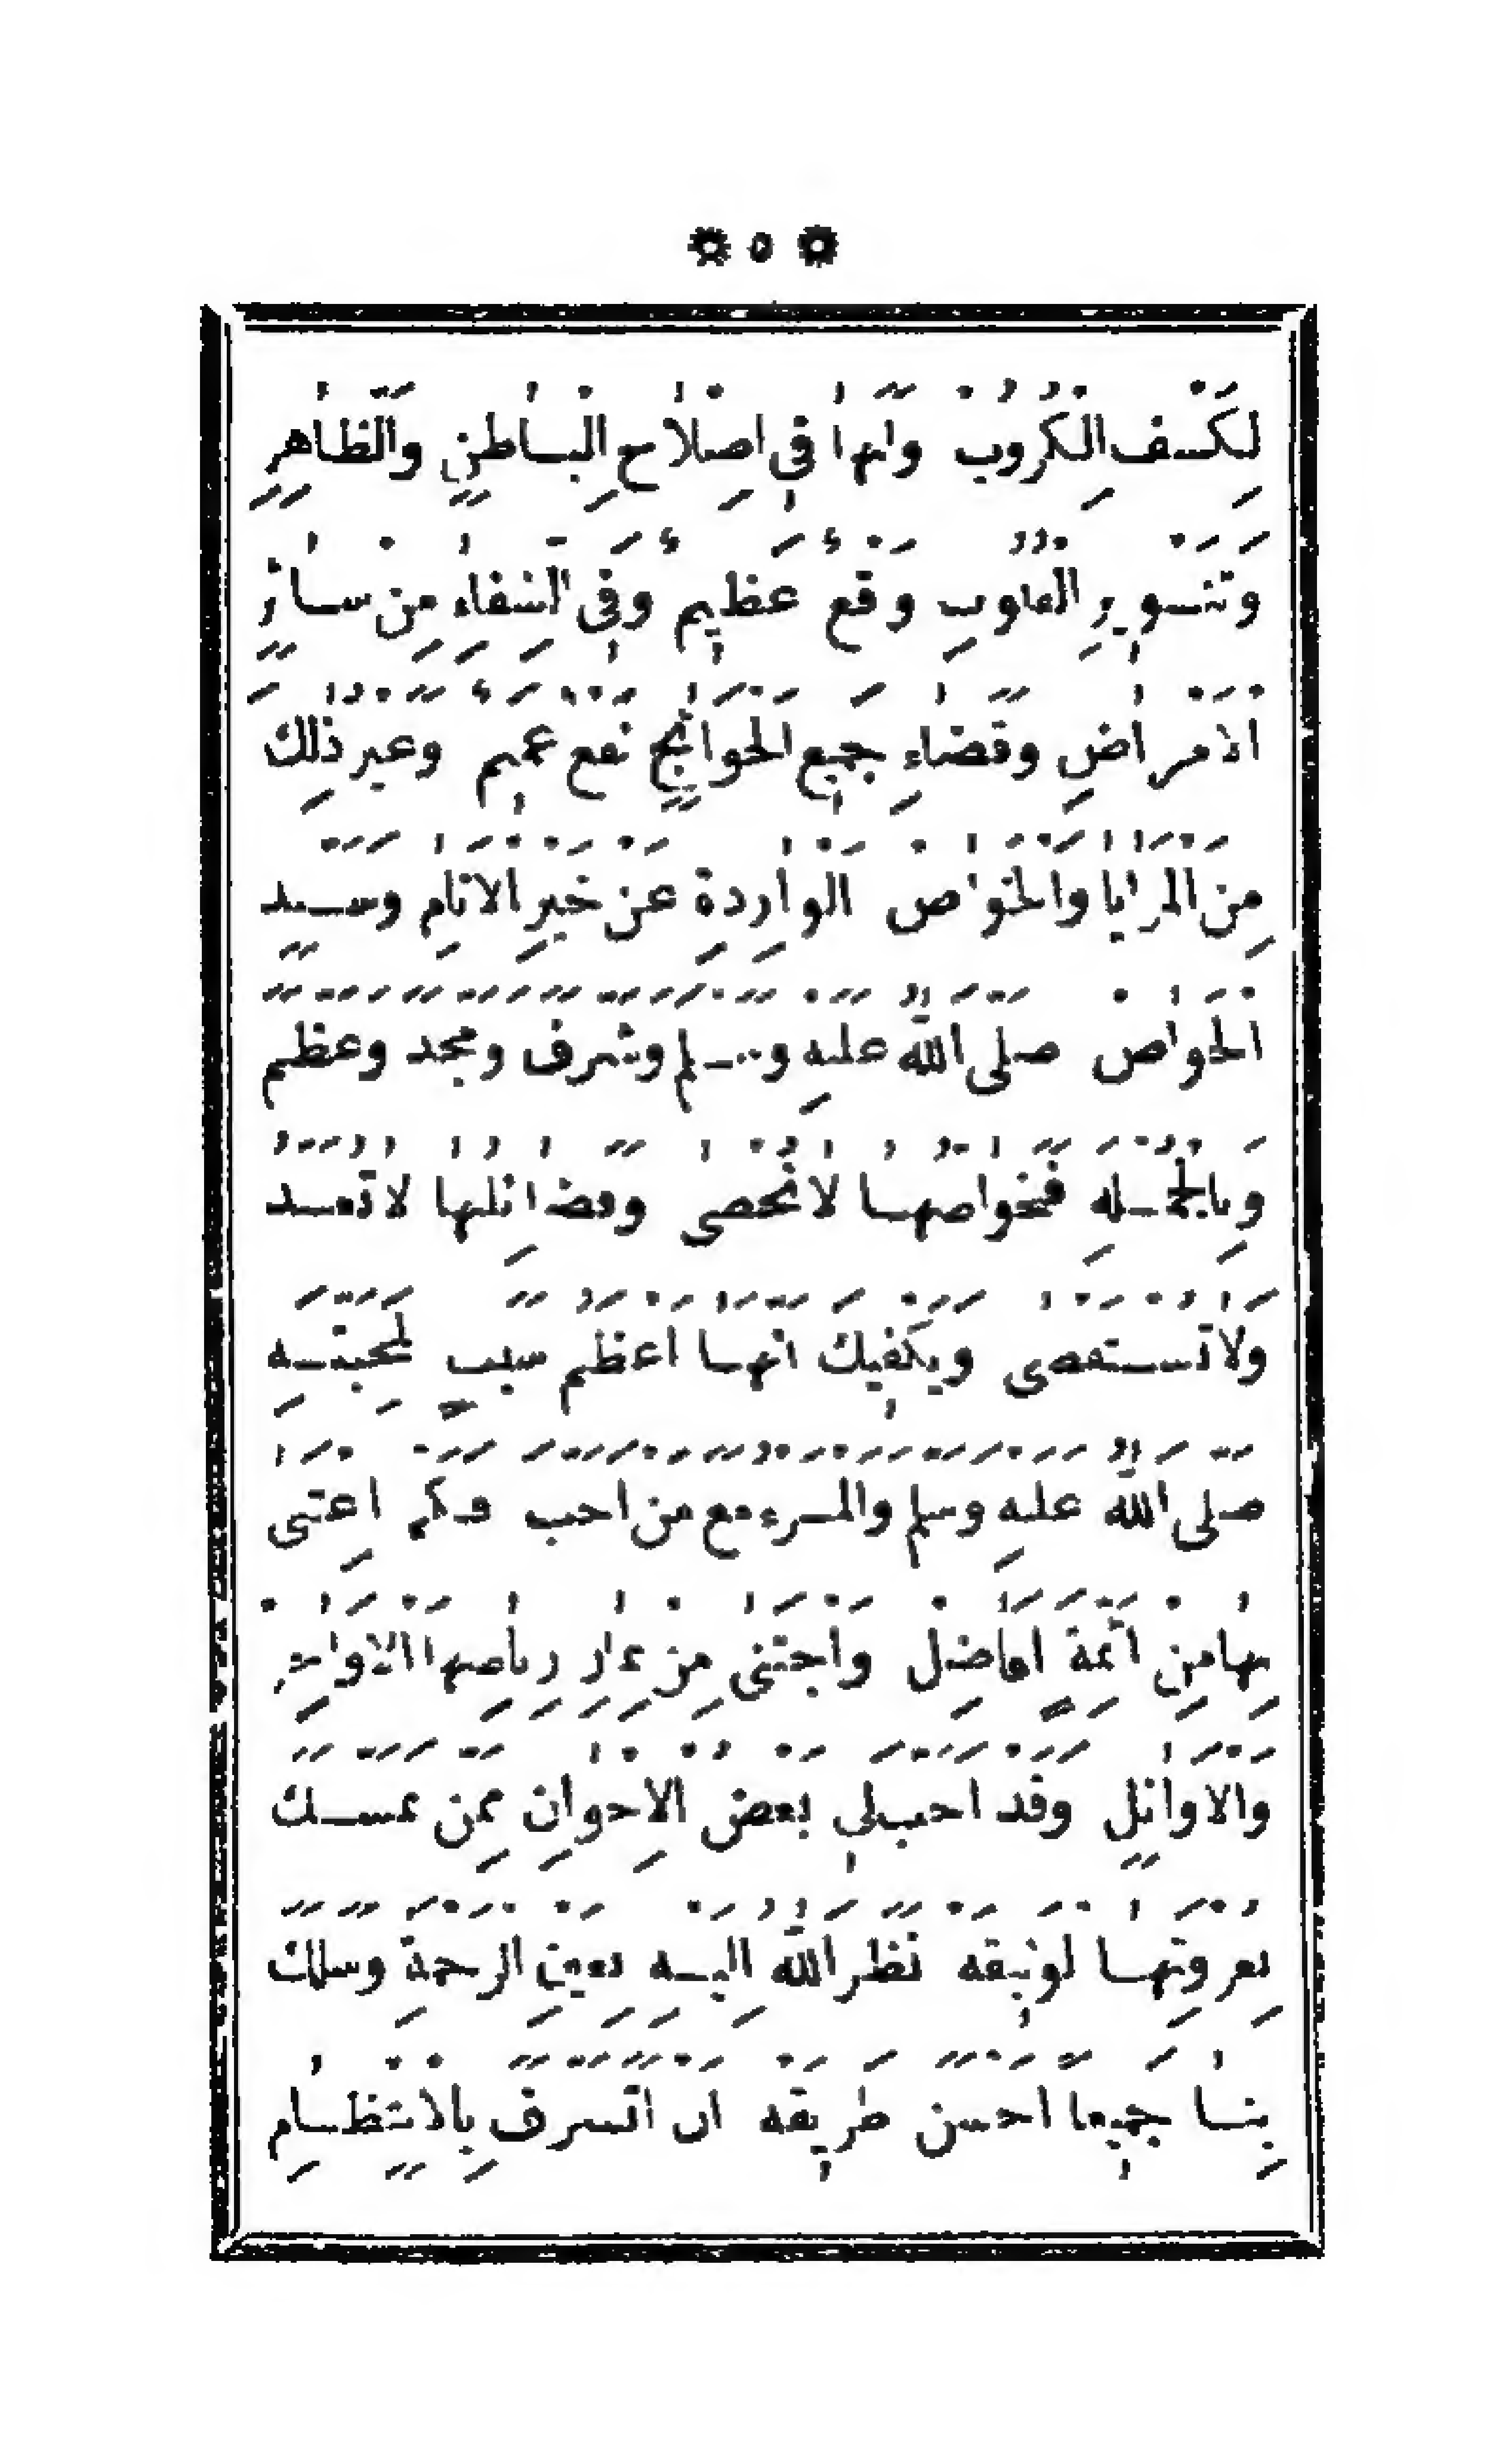 ٥
لِكَشْفِ الْكُرُوبْ وَلَهَا فِي اِصْلَاحِ الْبَاطِنِ وَالظَّاهِرِ
وَتَنْوِيرِ الْقُلُوبِ وَقْعٌ عَظِيمٌ وَفِي الشِّفَاءِ مِنْ سَائِرِ
الْاَمْرَاضِ وَقَضَاءِ جَمِيعِ الْحَوَائِجِ نَفْعٌ عَمِيمٌ وَغَيْرُ ذٰلِكَ
مِنَ الْمَزَايَا وَالْخَوَاصْ الْوَارِدَةِ عَنْ خَيْرِ الْاَنَامِ وَسَيِّدِ
الْخَوَاصْ صَلَّى اللّٰهُ عَلَيْهِ وَسَلَّمَ وَشَرَّفَ وَمَجَّدَ وَعَظَّمَ
وَبِالْجُمْلَةِ فَخَوَاصُّهَا لَا تُحْصٰى وَفَضَائِلُهَا لَا تُعَدُّ
وَلَا تُسْتَقْصٰى وَيَكْفِيكَ اَنَّهَا اَعْظَمُ سَبَبٍ لِمَحَبَّتِهِ
صَلَّى اللّٰهُ عَلَيْهِ وَسَلَّمَ وَالْمَرْءُ مَعَ مَنْ اَحَبَّ فَكَمْ اِعْتَنٰى
بِهَا مِنْ اَئِمَّةٍ اَفَاضِلْ وَاجْتَنٰى مِنْ ثِمَارِ رِيَاضِهَا الْاَوَاخِرْ
وَالْاَوَائِلِ وَقَدْ اَحَبَّ لِي بَعْضُ الْاِخْوَانِ مِمَّنْ تَمَسَّكَ
بِعُرْوَتِهَا لْوَثِيقَهْ نَظَرَ اللّٰهُ اِلَيْهِ بِعَيْنِ الرَّحْمَةِ وَسَلَكَ
بِنَا جَمِيعاً اَحْسَنَ طَرِيقَهْ اَنْ اَتَشَرَّفَ بِالْاِنْتِظَامِ